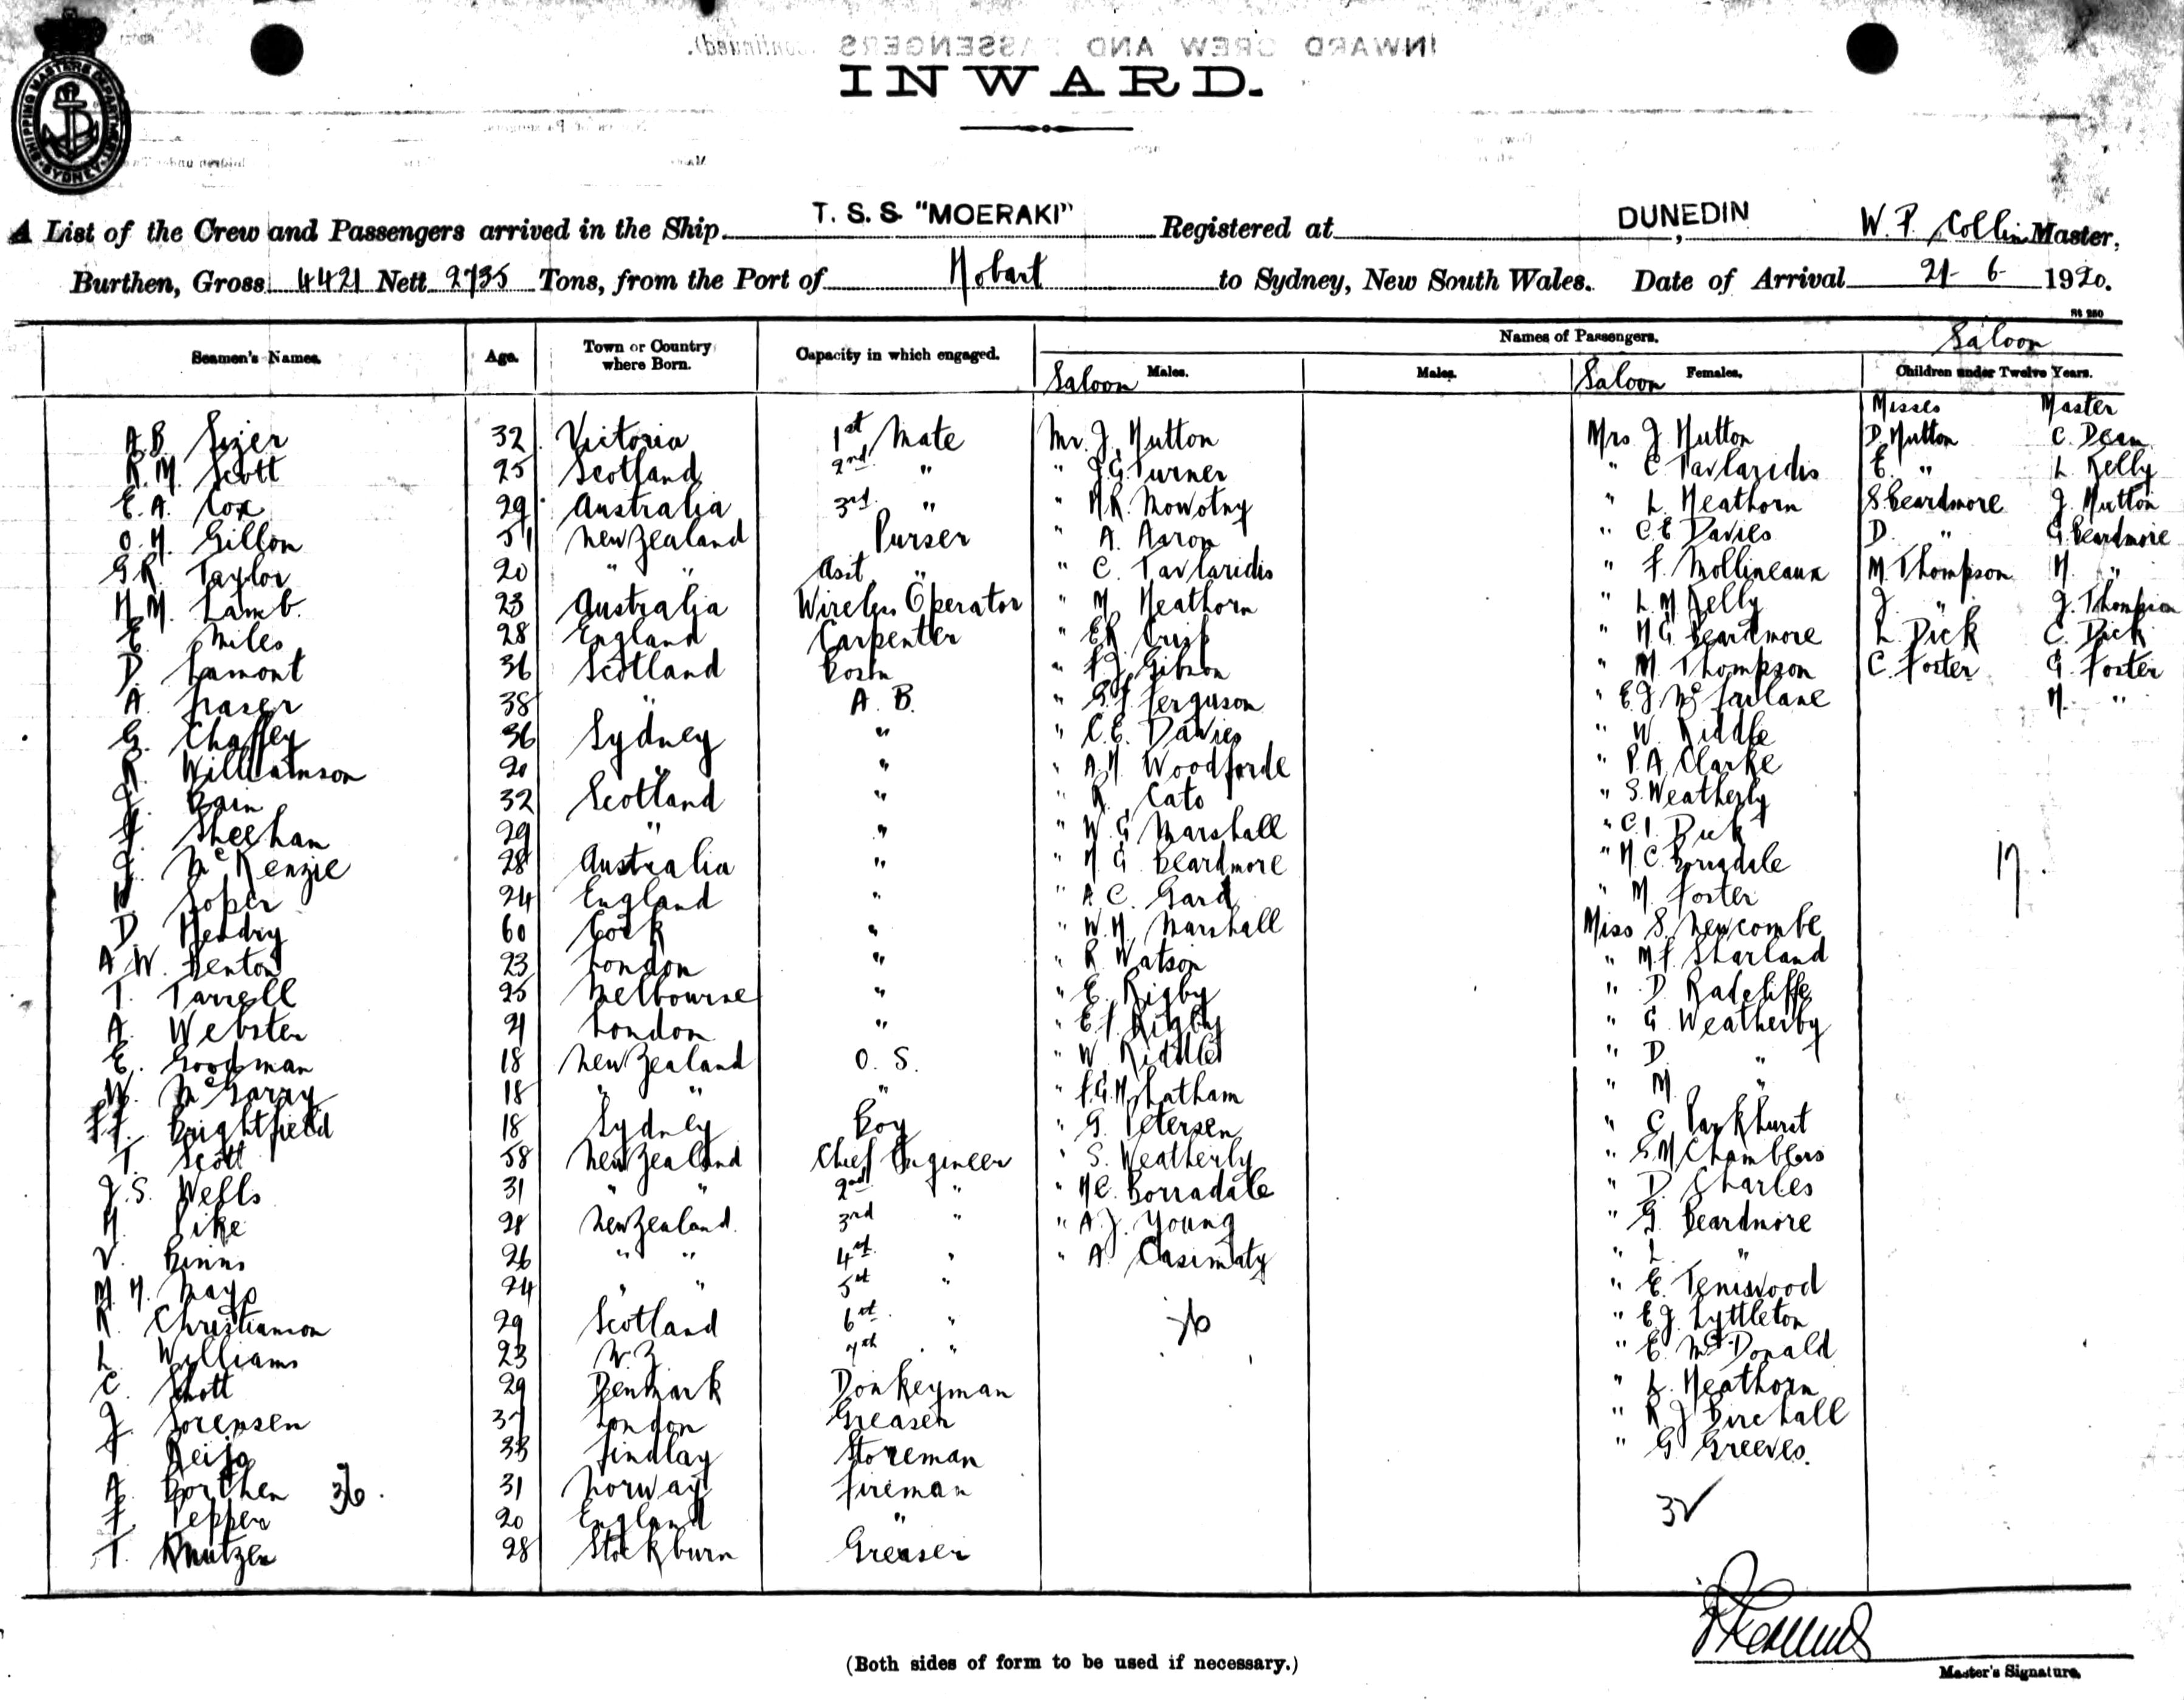 INWARD CREW AND PASSENGERS (continued).
INWARD.
SHIPPING MASTERS DEPARTMENT SYDNEY
T. S. S. "MOERAKI" DUNEDIN W. P. Collin
A List of the Crew and Passengers arrived in the Ship Registered at Master,
Burthen, Gross 4421 Nett 2735 Tons, from the Port of Hobart to Sydney, New South Wales. Date of Arrival 21-6-1920.
Names of Passengers. Saloon
Seamen's Names. Age. Town or Country where Born. Capacity in which engaged. Saloon Males. Males. Saloon Females. Children under Twelve Years.
Misses Master
A.B. Sizer 32 Victoria 1st Mate Mr. J. Hutton Mrs J. Hutton D. Hutton C. Dean
R. M. Scott 25 Scotland 2nd " " J.G. Turner " C Tavlaridis E. " L Kelly
E. A. Cox 29 Australia 3rd " " H.R. Nowotny " L. Heathorn S. Beardmore J. Hutton
O. H. Gillon 51 New Zealand Purser " A. Aaron " C.E Davies D. " G. Beardmore
G R. Taylor 20 " " Asst " " C. Tavlaridis " F. Mollineaux M. Thompson H. "
H. M. Lamb. 23 Australia Wireless Operator " M. Heathorn " L. M Kelly J. " J. Thompson
E. Miles 28 England Carpenter " E R Crisp " H. G Beardmore L. Dick C. Dick
D. Lamont 36 Scotland Bosn " F J Gibson " M Thompson C. Foster G. Foster
A. Fraser 38 " A. B. " G. F. Ferguson " E. J McFarlane H. "
G. Chaffey 36 Sydney " " C. E. Davies " W. Riddle
R. Williamson 20 " " " A. H Woodforde " P. A. Clarke
J. Bain 32 Scotland " " R. Cato " S. Weatherly
Sheehan 29 " " " W. G Marshall " C. I. Dick
J. McKenzie 28 Australia " " H G Beardmore " H. C. Borradale 17.
Soper 24 England " " A C. Gard " M. Foster
D. Hendry 60 Cork " " W. H. Marshall Miss S. Newcombe
A. W. Denton 23 London " " R Watson " M. F. Sharland
T. Tarrell 25 Melbourne " " E. Rigby " D. Radcliffe
A. Webster 21 London " " E. F. Rigby " G Weatherby
E. Goodman 18 New Zealand O. S. " W. Riddle " D. "
W. McGarry 18 " " " " F.G.H. Latham " M. "
F.F. Brightfield 18 Sydney Boy " G. Petersen " C. Parkhurst
T. Scott 58 New Zealand Chief Engineer " S. Weatherly " S. M Chambers
J. S. Wells 31 " " 2nd " " H C. Borradale " D. Charles
H. Pike 28 New Zealand 3rd " " A. J. Young " G. Beardmore
V. Binns 26 " " 4th " " A. Casimaty " L "
M. H. Mayo 24 " " 5th " " E. Teniswood
R. Christianson 29 Scotland 6th " 26 " E. J Lyttleton
L. Williams 23 N. Z 7th " " E. McDonald
C. Shott 29 Denmark Donkeyman " L. Heathorn
J. Sorensen 37 London Greaser " R. J Birchall
Reijo 33 Findlay Storeman " G Greeves.
A. Borthen 36. 31 Norway Fireman
F. Pepper 20 England " 32
T. Knutzen 28 Stockburn Greaser
(Both sides of form to be used if necessary.)
Master's Signature.